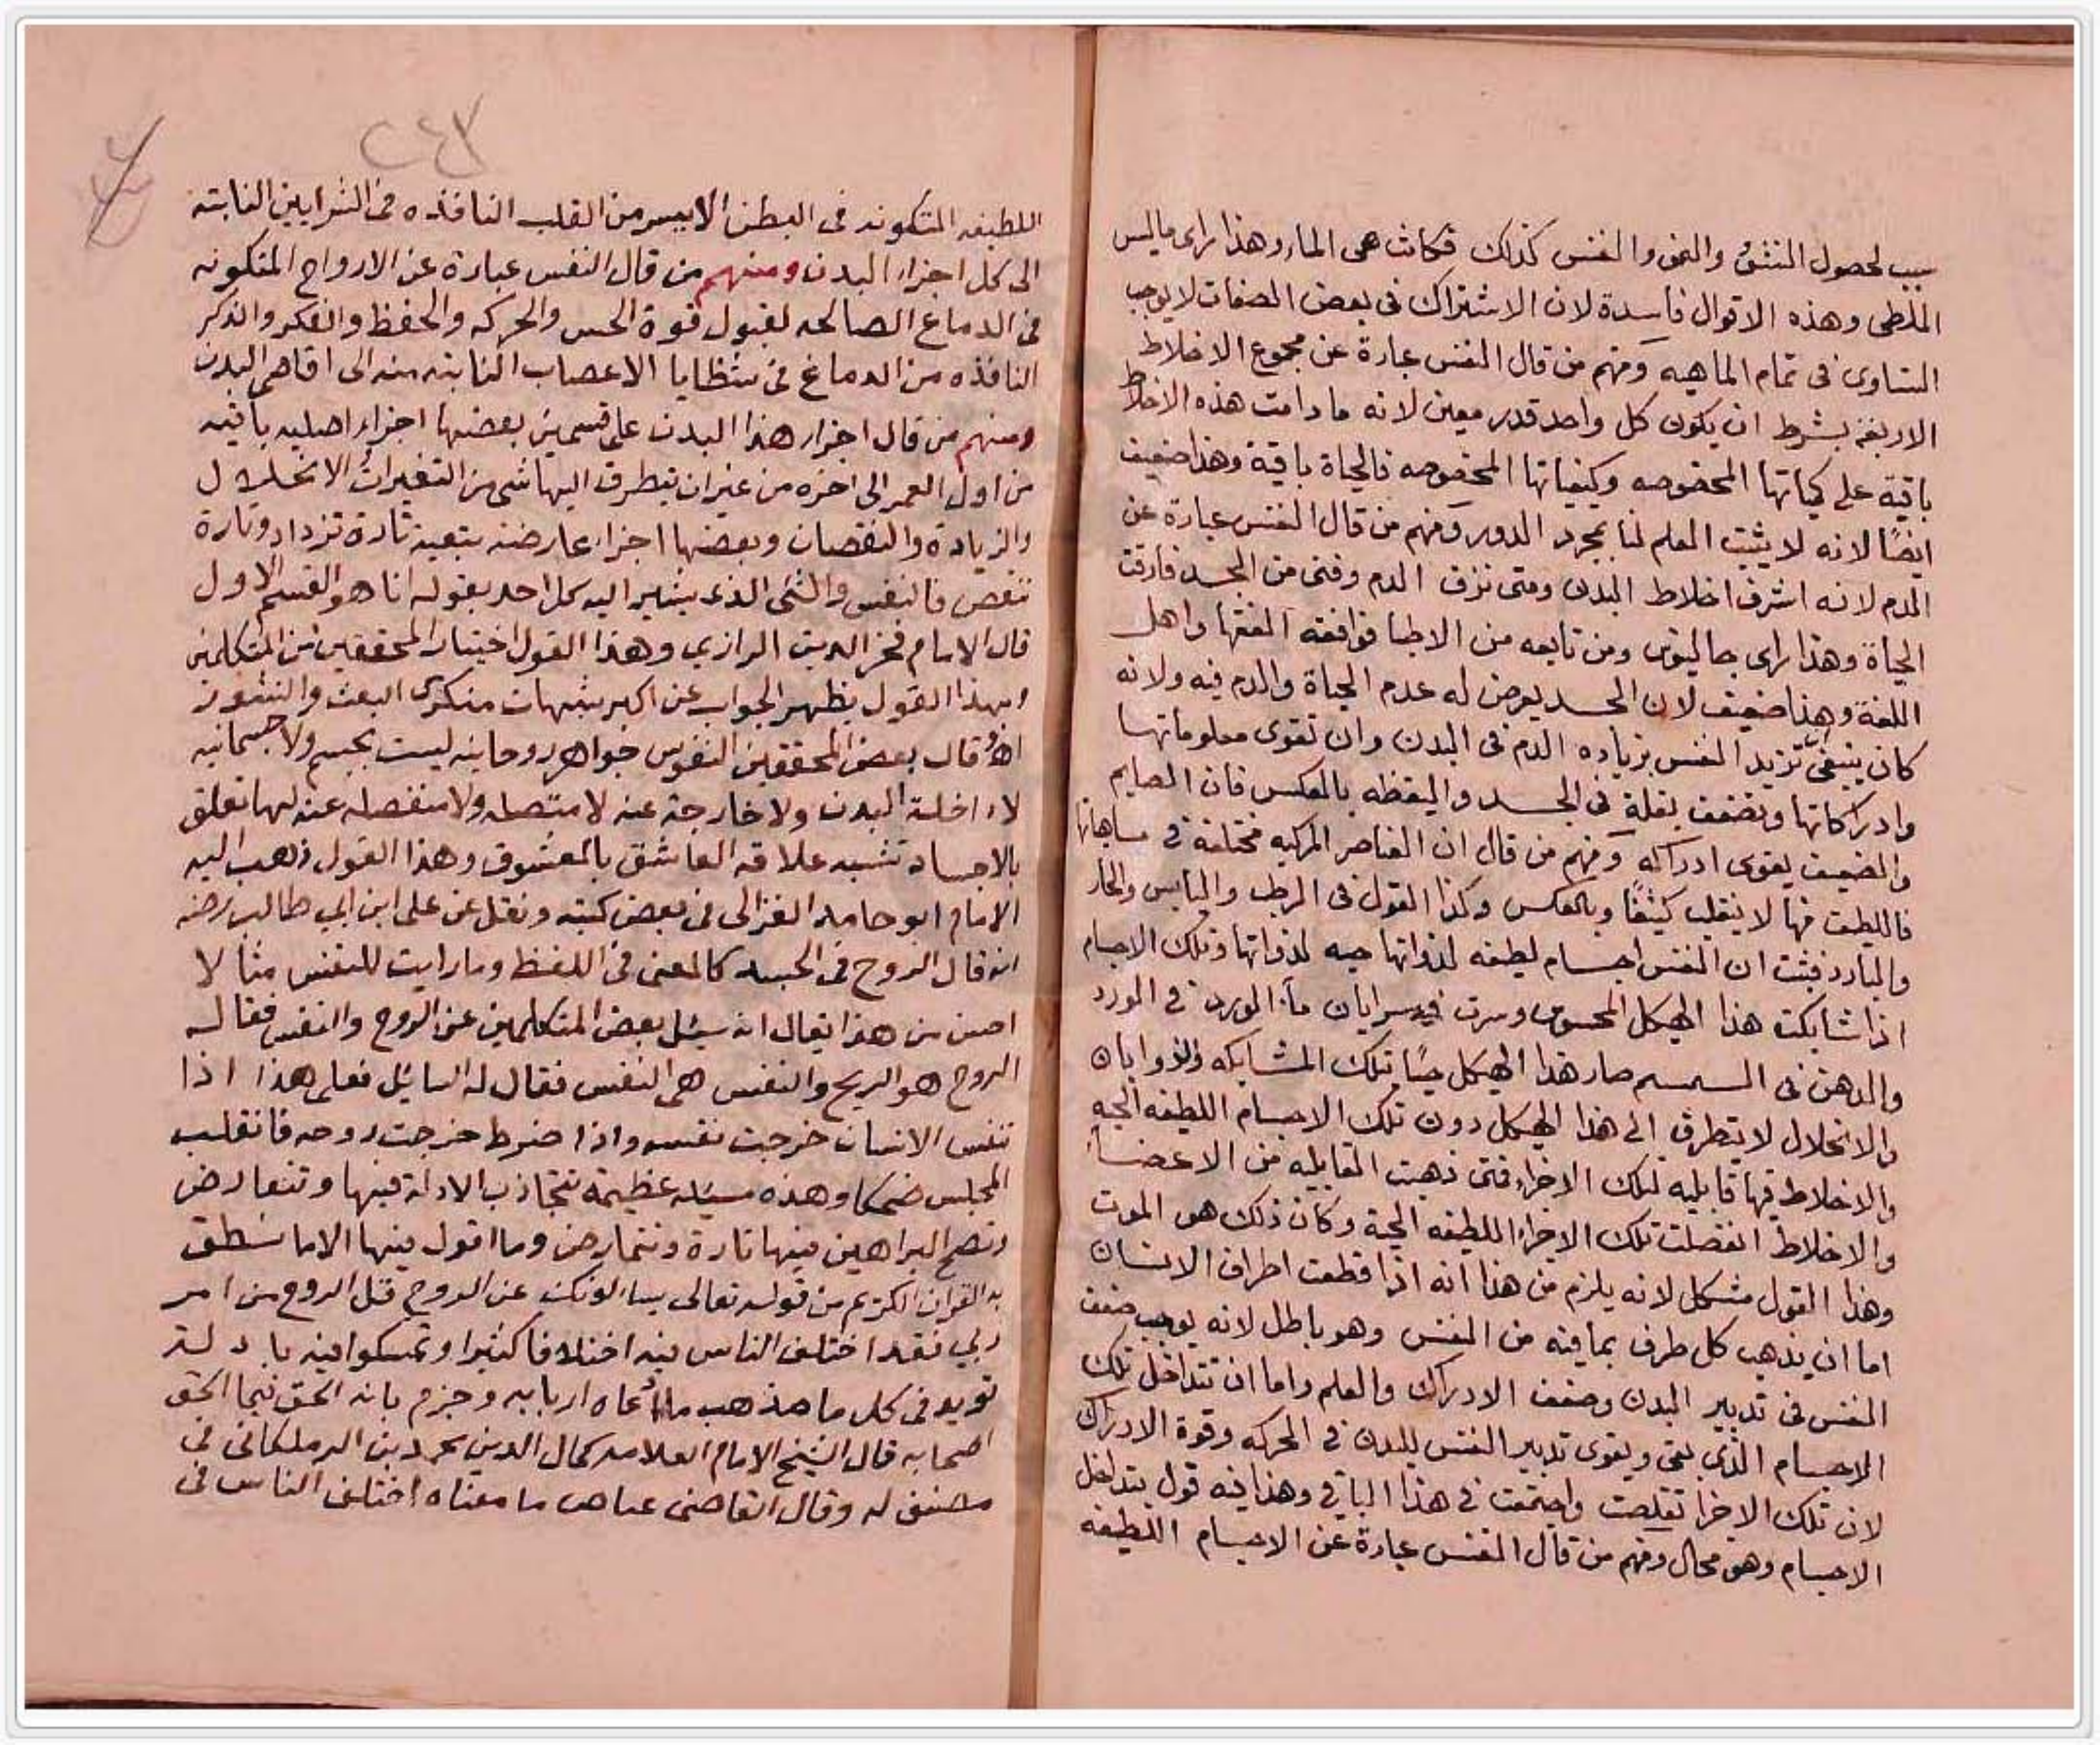 سبب لحصول النشؤ والنمو والنفس كذلك فكانت هى الماء وهذا راى ماليس
الملطى وهذه الاقوال فاسدة لان الاشتراك فى بعض الصفات لا يوجب
التساوى فى تمام الماهيه ومنهم من قال النفس عبارة عن مجموع الاخلاط
الاربعة بشرط ان يكون كل واحد قدر معين لانه ما دامت هذه الاخلاط
باقية على كمياتها المخصوصه وكيفياتها المخصوصه فالحياة باقية وهذا ضعيف
ايضًا لانه لا يثبت العلم لنا بمجرد الدور ومنهم من قال النفس عبارة عن
الدم لانه اشرف اخلاط البدن ومتى نزف الدم وفنى من الجسد فارقت
الحياة وهذا راى جالينوس ومن تابعه من الاطبا فوافقه الفقها واهل
اللغة وهذا ضعيف لان الجسد يعرض له عدم الحياة والدم فيه ولانه
كان ينبغى تزيد النفس بزياده الدم فى البدن وان تقوى معلوماتها
وادراكاتها وتضعف بقلة فى الجسد واليقظه بالعكس فان الصايم
والضعيف يقوى ادراكه ومنهم من قال ان العناصر المركبه مختلفة فى
فاللطيف فيها لا ينقلب كثيفًا وبالعكس وكذا القول فى الرطب واليابس والحار
والبارد فثبت ان النفس اجسام لطيفه لذواتها حيه لذواتها وتلك الاجسام
اذا شابكت هذا الهيكل المحسوس وسرت فيه سرايان ماء الورد فى الورد
والدهن فى السمسم صار هذا الهيكل حيًا بتلك المشابكه والذوابان
والانحلال لا يتطرق الى هذا الهيكل دون تلك الاجسام اللطيفه الحيه
والاخلاط فيها قابليه لتلك الاجزاء فمتى ذهبت القابليه من الاعضا
والاخلاط انفصلت تلك الاجزاء اللطيفه الحية وكان ذلك هو الموت
وهذا القول مشكل لانه يلزم من هذا انه اذا قطعت اطراف الانسان
اما ان يذهب كل طرف بما فيه من النفس وهو باطل لانه يوجب ضعف
النفس فى تدبير البدن وضعف الادراك والعلم واما ان تتداخل تلك
الاجسام الذى بقى ويقوى تدبير النفس للبدن فى الحركه وقوة الادراك
لان تلك الاجزا تقلصت واجتمعت فى هذا الباقى وهذا فيه قول بتداخل
الاجسام وهو محال ومنهم من قال النفس عبارة عن الاجسام اللطيفه
٢٤٧
اللطيفه المتكونه فى البطن الايسر من القلب النافذه فى الشرايين النابته
الى كل اجزاء البدن ومنهم من قال النفس عبارة عن الارواح المتكونه
فى الدماغ الصالحه لقبول قوة الحس والحركه والحفظ والفكر والذكر
النافذه من الدماغ فى شظايا الاعصاب النابته منه الى اقاصى البدن
ومنهم من قال اجزاء هذا البدن على قسمين بعضها اجزاء اصليه باقيه
من اول العمر الى اخره من غير ان يتطرق اليها شى من التغيرات الانحلال
والزيادة والنقصان وبعضها اجزاء عارضه بتبعيه تارة تزداد وتارة
تنقص فالنفس والشى الذى يشير اليه كل احد بقوله انا هو القسم الاول
قال الامام فخر الدين الرازي وهذا القول اختيار المحققين من المتكلمين
وبهذا القول يظهر الجواب عن اكبر شبهات منكرى البعث والنشور
اهـ قال بعض المحققين النفوس جواهر روحانيه ليست بجسم ولا جسمانيه
لا داخلة البدن ولا خارجة عنه لا متصله ولا منفصله عنه لها تعلق
بالاجساد تشبه علاقه العاشق بالمعشوق وهذا القول ذهب اليه
الامام ابو حامد الغزالى فى بعض كتبه ونقل عن على ابن ابي طالب رضه
انه قال الروح فى الجسد كالمعنى فى اللفظ وما رايت للنفس مثالا
احسن من هذا يقال انه سئل بعض المتكلمين عن الروح والنفس فقال
الروح هو الريح والنفس هى النفس فقال له السائل فعلى هذا اذا
تنفس الانسان خرجت نفسه واذا ضرط خرجت روحه فانقلب
المجلس ضحكا وهذه مسئله عظيمة تتجاذب الادلة فيها وتتعارض
وتصح البراهين فيها تارة وتتمارض وما اقول فيها الا ما نطق
به القران الكريم من قوله تعالى يسالونك عن الروح قل الروح من امر
ربي فقد اختلف الناس فيه اختلافا كثيرا وتمسكوا فيه بادلة
تويد فى كل ما مذهب ما ادعاه اربابه وجزم بانه الحق نبحا الحق
اصحابه قال الشيخ الامام العلامه كمال الدين محمد بن الزملكانى فى
مصنف له وقال القاضى عياض ما معناه اختلف الناس فى